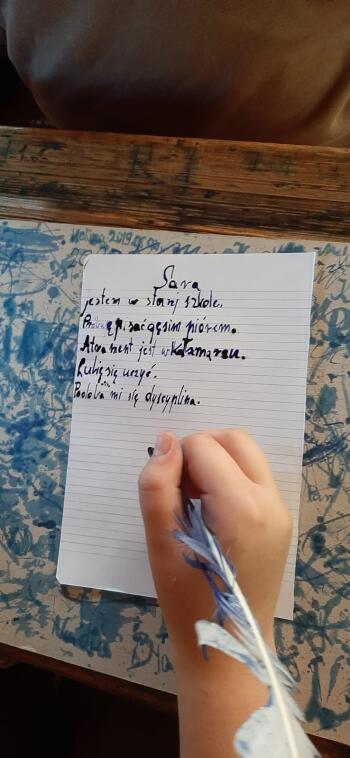 Sara
jestem w starej szkole.
Próbuję pisać gęsim piórem.
Atrament jest w kałamarzu.
Lubię się uczyć.
Podoba mi się dyscyplina.